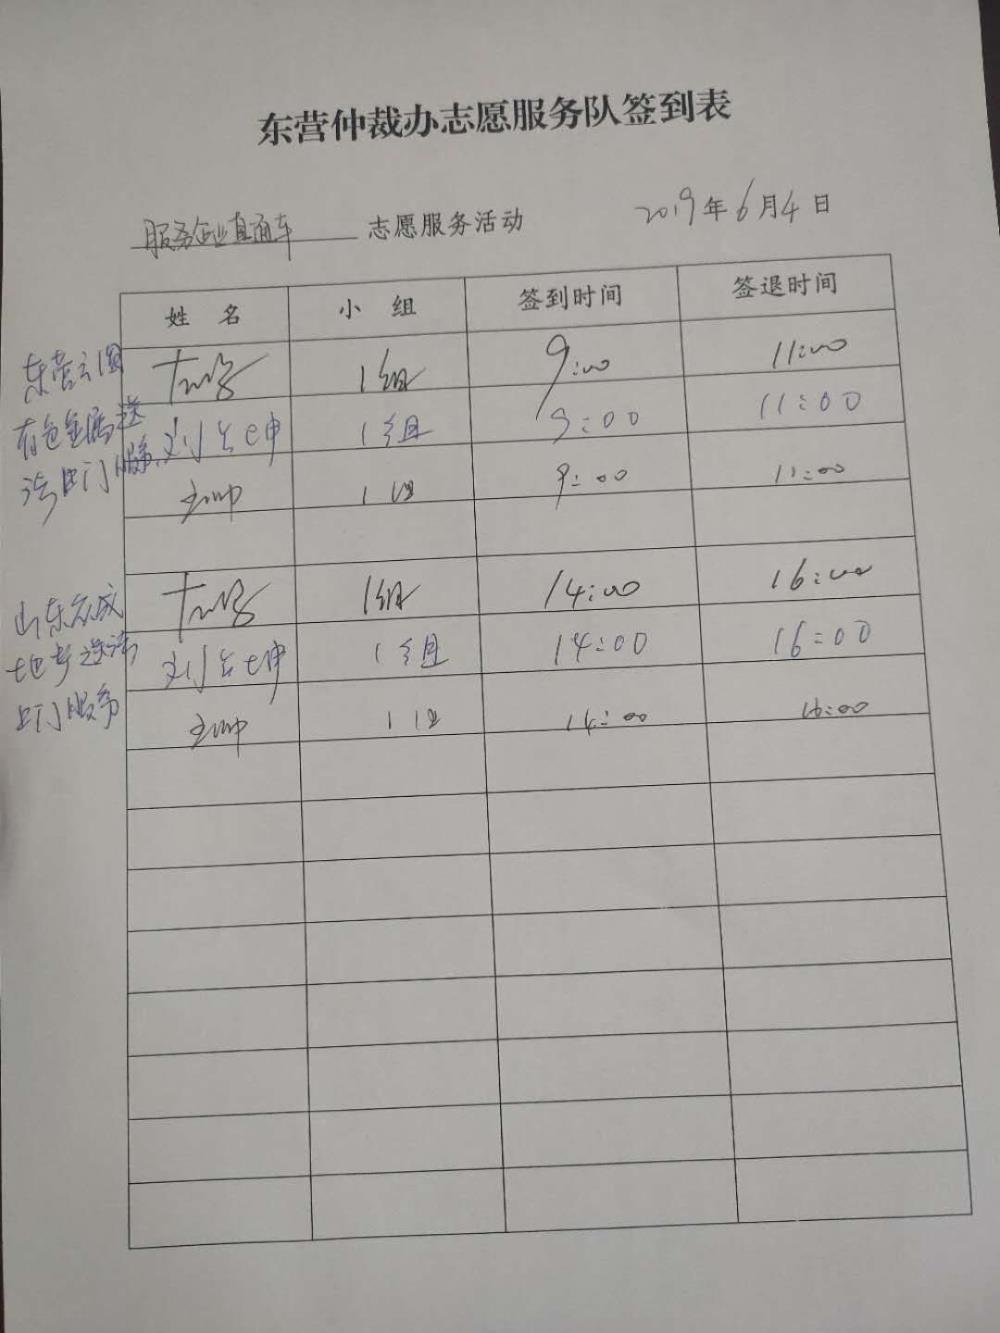 东营仲裁办志愿服务队签到表
服务企业直通车 志愿服务活动 2019年6月4日
姓 名 小 组 签到时间 签退时间
东营方圆 1组 9:00 11:00
有色金属送 1组 9:00 11:00
法上门服务 1组 9:00 11:00
山东众成 1组 14:00 16:00
地产送法 1组 14:00 16:00
上门服务 1组 14:00 16:00